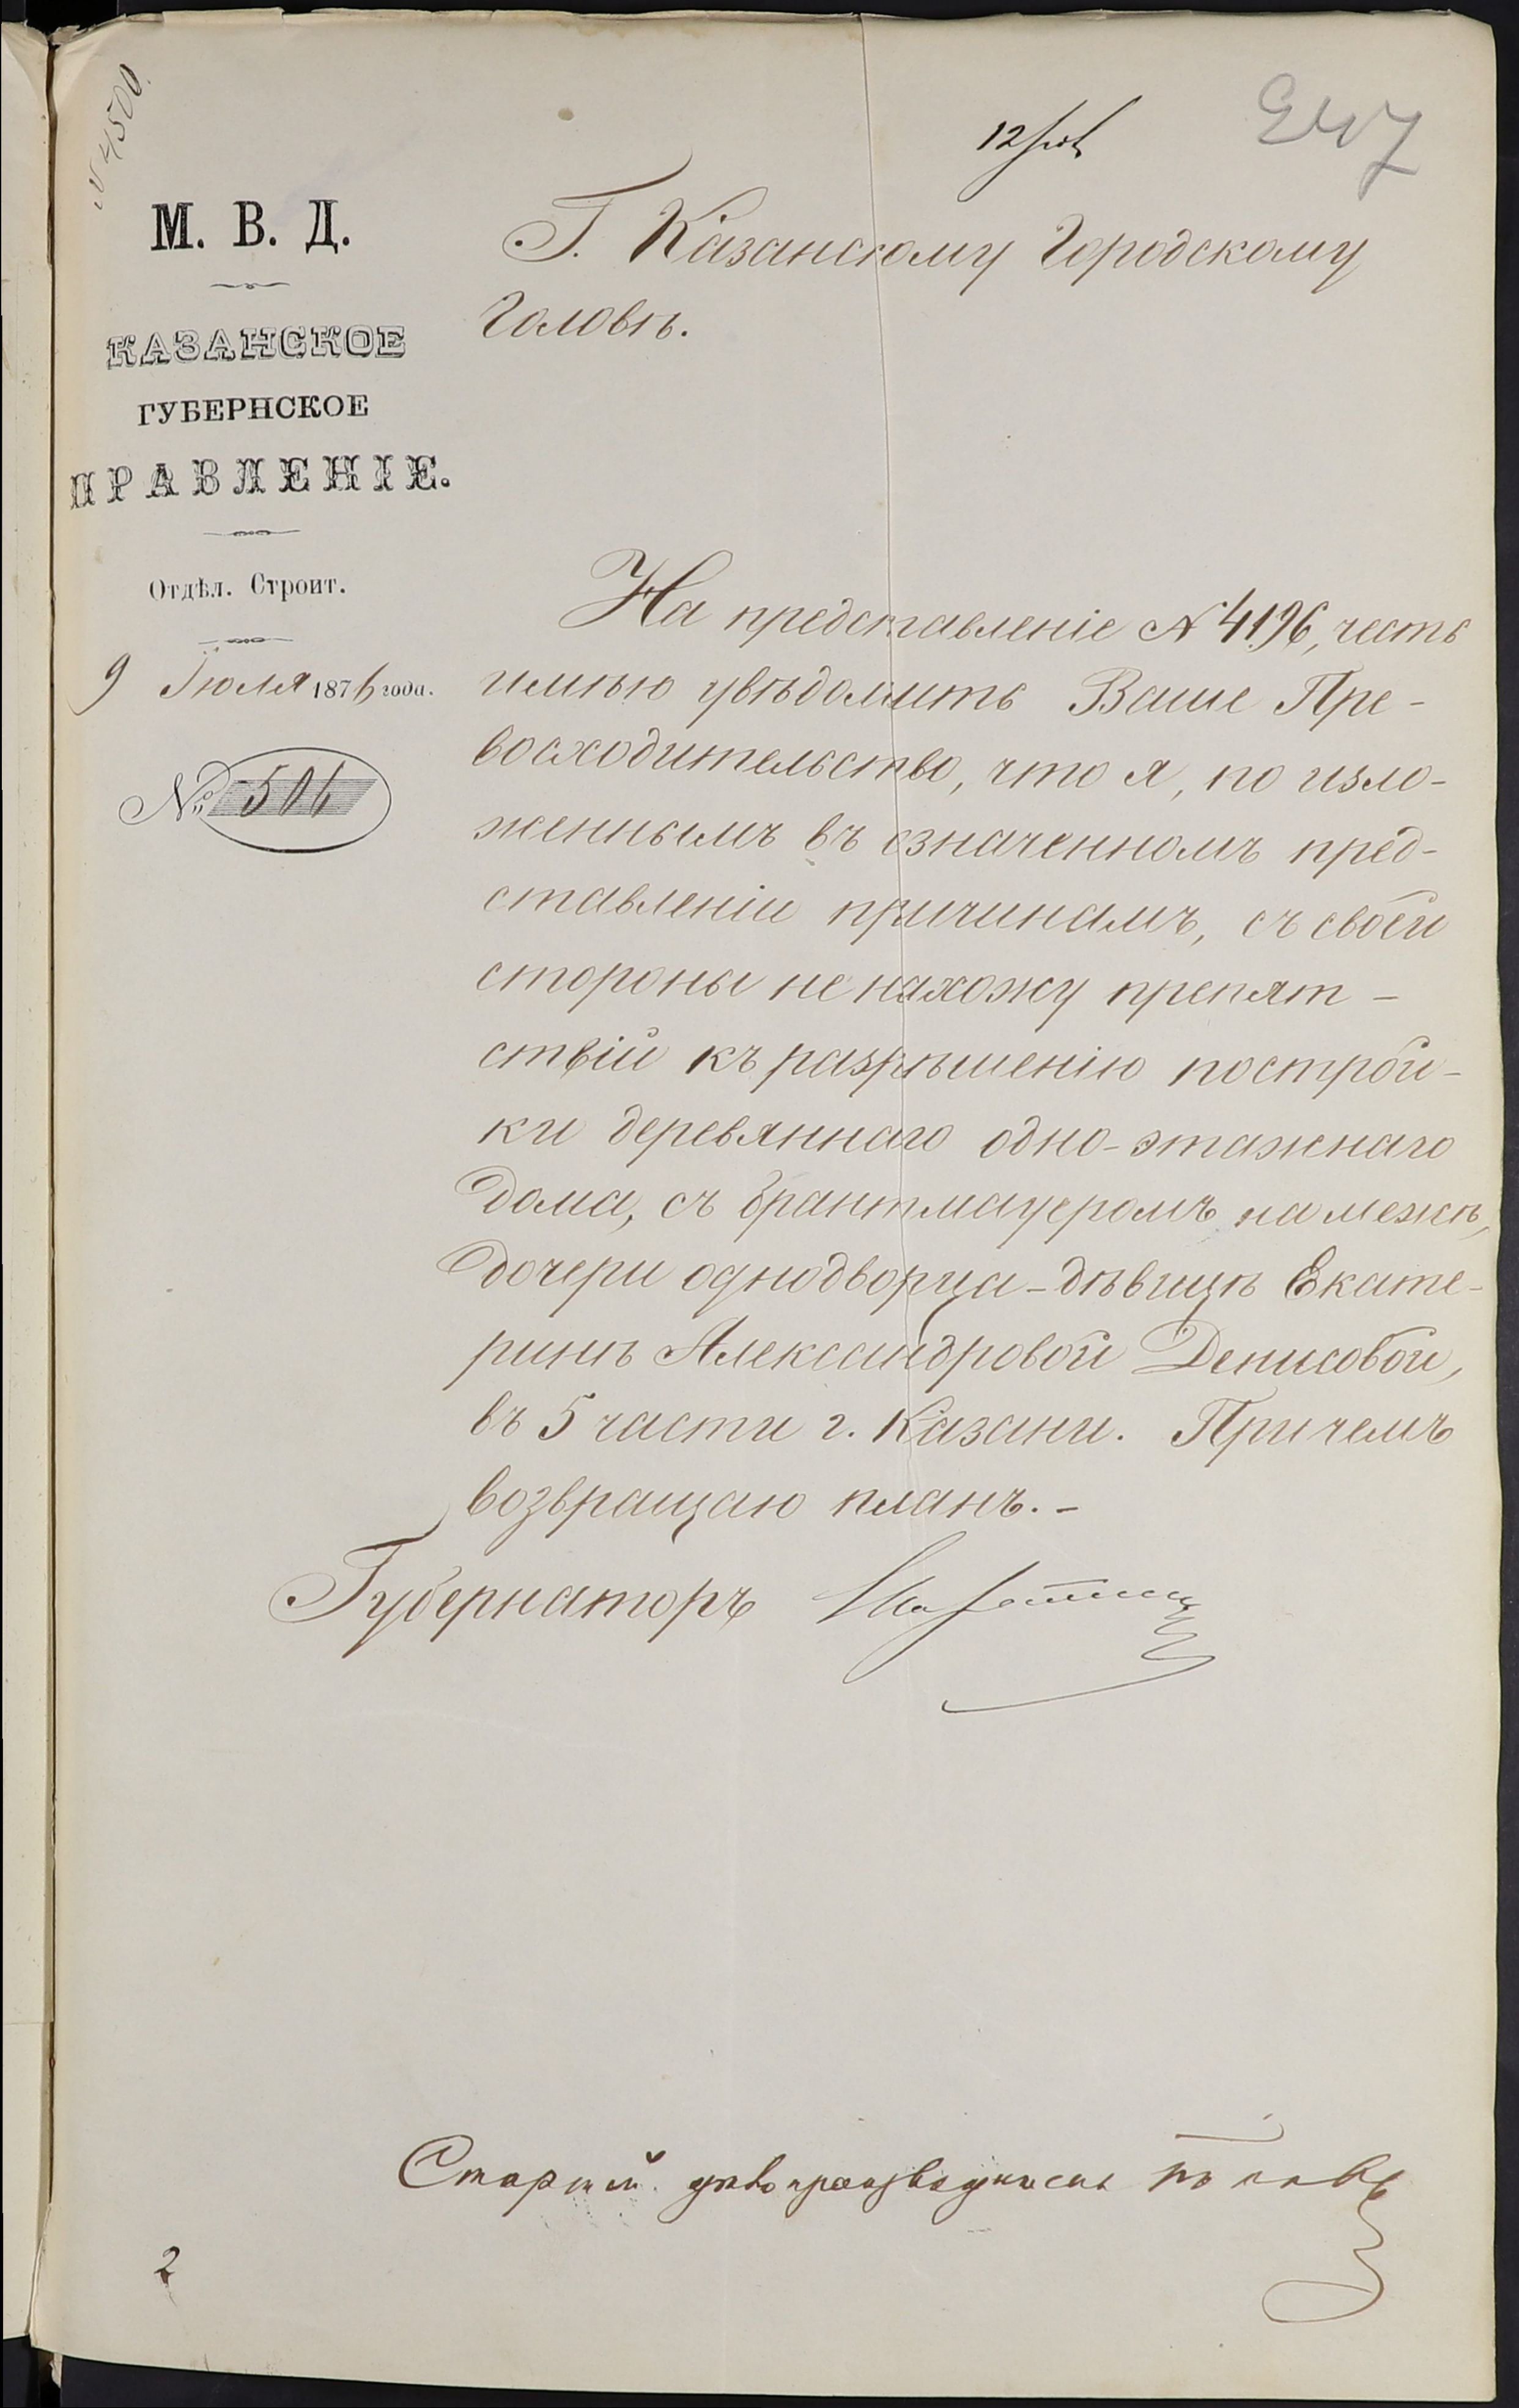 № 4500.
12 Іюл
247
М. В. Д.
КАЗАНСКОЕ
ГУБЕРНСКОЕ
ПРАВЛЕНІЕ.
Отдѣл. Строит.
9 Іюля 1876 года.
№ 504
Г. Казанскому Городскому
Головѣ.
На представленіе № 4196, честь
имѣю увѣдомить Ваше Пре-
восходительство, что я, по изло-
женнымъ въ означенномъ пред-
ставленіи причинамъ, съ своей
стороны не нахожу препят-
ствій къ разрѣшенію построй-
ки деревяннаго одно-этажнаго
дома, съ брантмауеромъ на межѣ,
дочери однодворца-дѣвицѣ Екате-
ринѣ Александровой Денисовой,
въ 5 части г. Казани. Причемъ
возвращаю планъ.-
Губернаторъ
Старшій дѣлопроизводитель
2